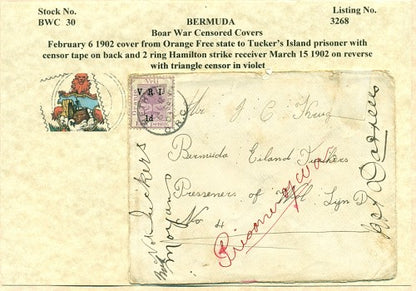 Stock No.
BWC 30
BERMUDA
Boar War Censored Covers
Listing No.
3268
February 6 1902 cover from Orange Free state to Tucker's Island prisoner with
censor tape on back and 2 ring Hamilton strike receiver March 15 1902 on reverse
with triangle censor in violet
V R I
1d
Mr J C
Bermuda Eiland Tuckers
Presseners of
No 4
Prisoner of War
Not Tuckers
Morgans